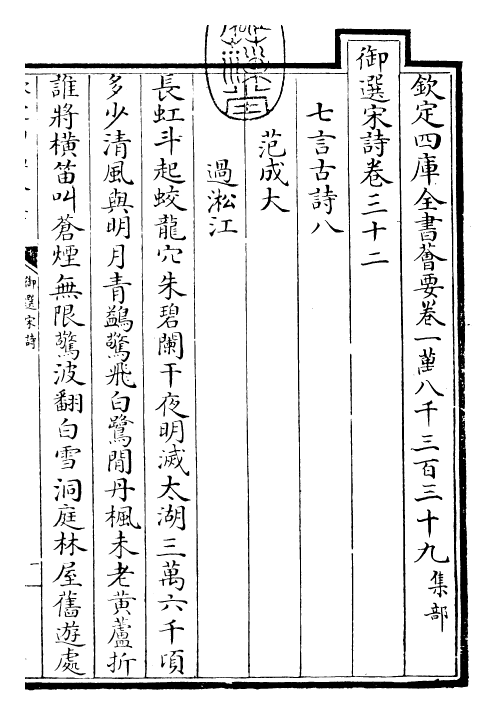 欽定四庫全書薈要卷一萬八千三百三十九 集部
御選宋詩卷三十二
七言古詩八
范成大
過淞江
長虹斗起蛟龍穴朱碧闌干夜明滅太湖三萬六千頃
多少清風與明月青鷁驚飛白鷺閒丹楓未老黃蘆折
誰將橫笛叫蒼煙無限驚波翻白雪洞庭林屋舊遊處
御選宋詩